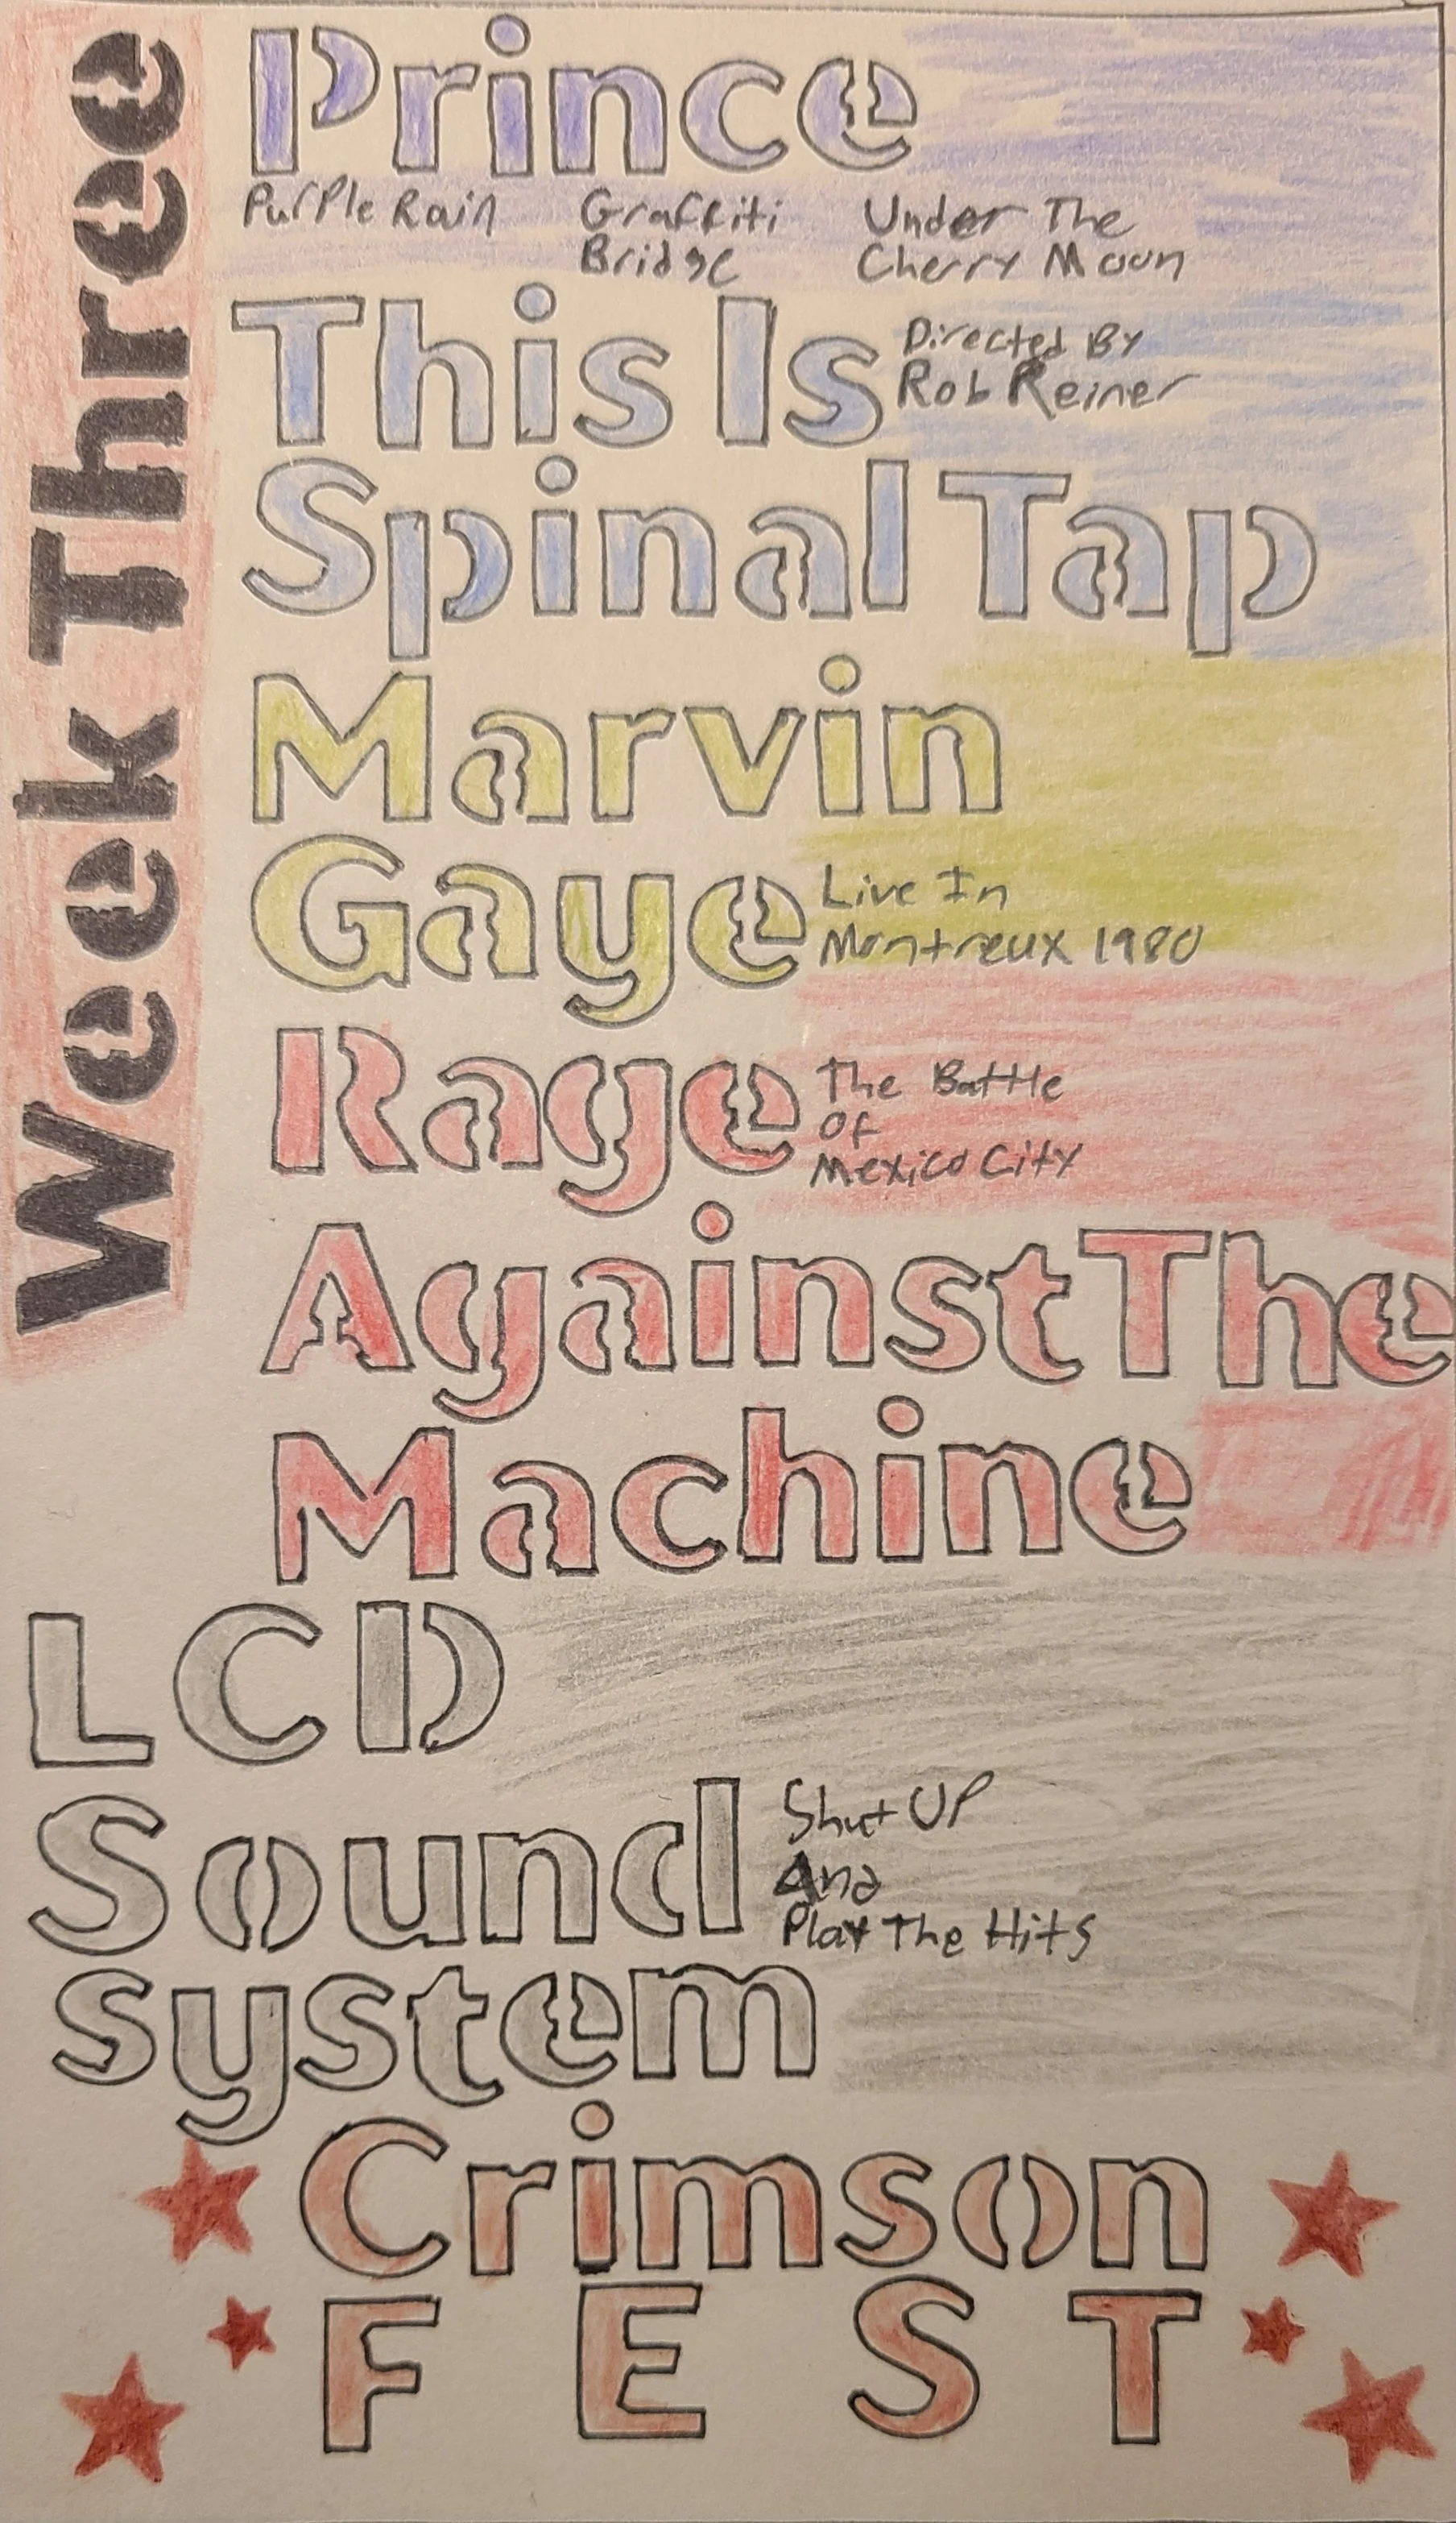 Week Three
Prince
Purple Rain
Graffiti
Bridge
Under The
Cherry Moon
This Is
Directed By
Rob Reiner
Spinal Tap
Marvin
Gaye
Live In
Montreux 1980
Rage
The Battle
Of
Mexico City
Against The
Machine
LCD
Sound
Shut UP
And
Play The Hits
system
Crimson
FEST